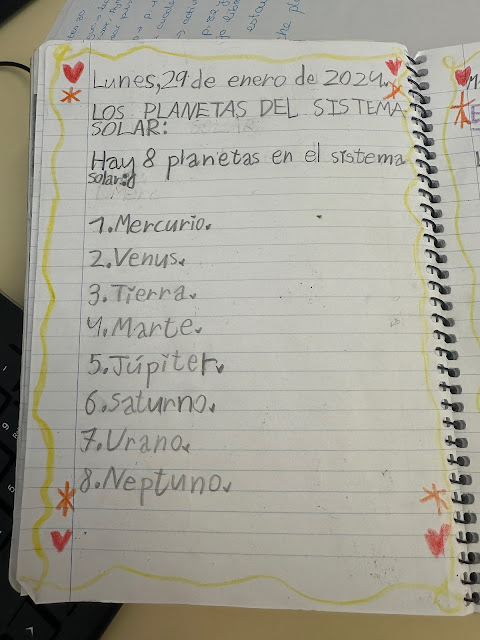 Lunes, 29 de enero de 2024.
LOS PLANETAS DEL SISTEMA
SOLAR:
Hay 8 planetas en el sistema
solar:
1. Mercurio.
2. Venus.
3. Tierra.
4. Marte.
5. Júpiter.
6. Saturno.
7. Urano.
8. Neptuno.